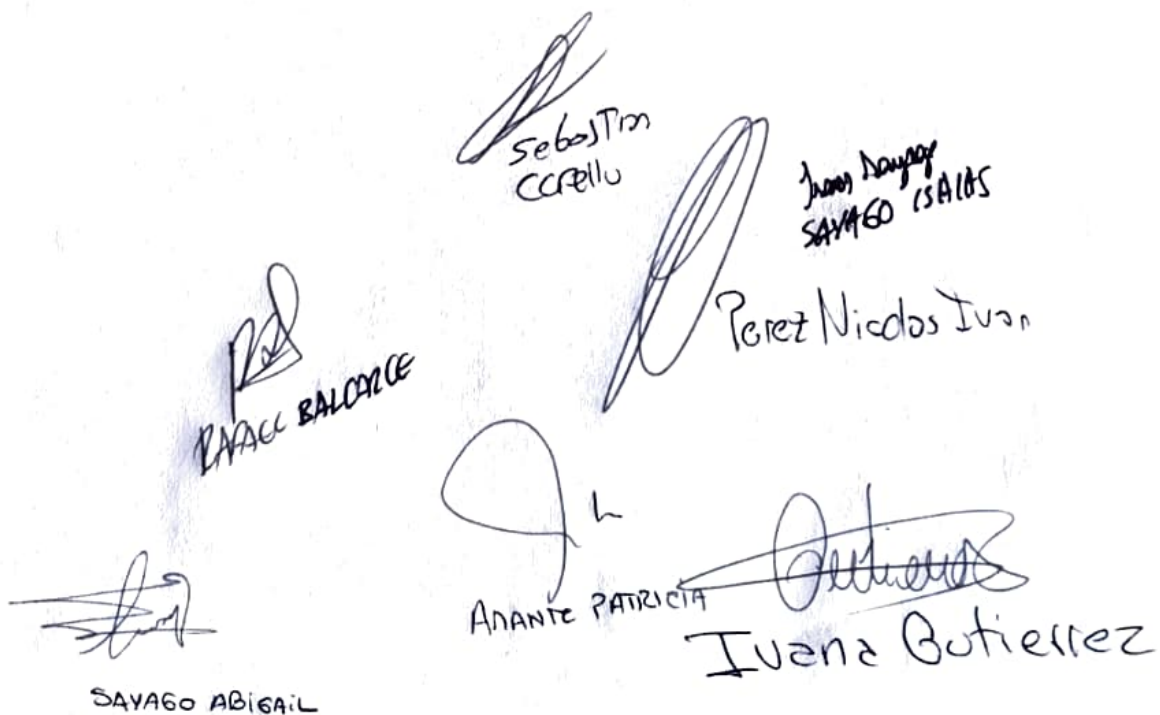 Sebastian
SAYAGO ISAIAS
Perez Nicolas Ivan
RAFAEL BALCARCE
AMANTE PATRICIA
Gutierrez
Ivana Gutierrez
SAYAGO ABIGAIL